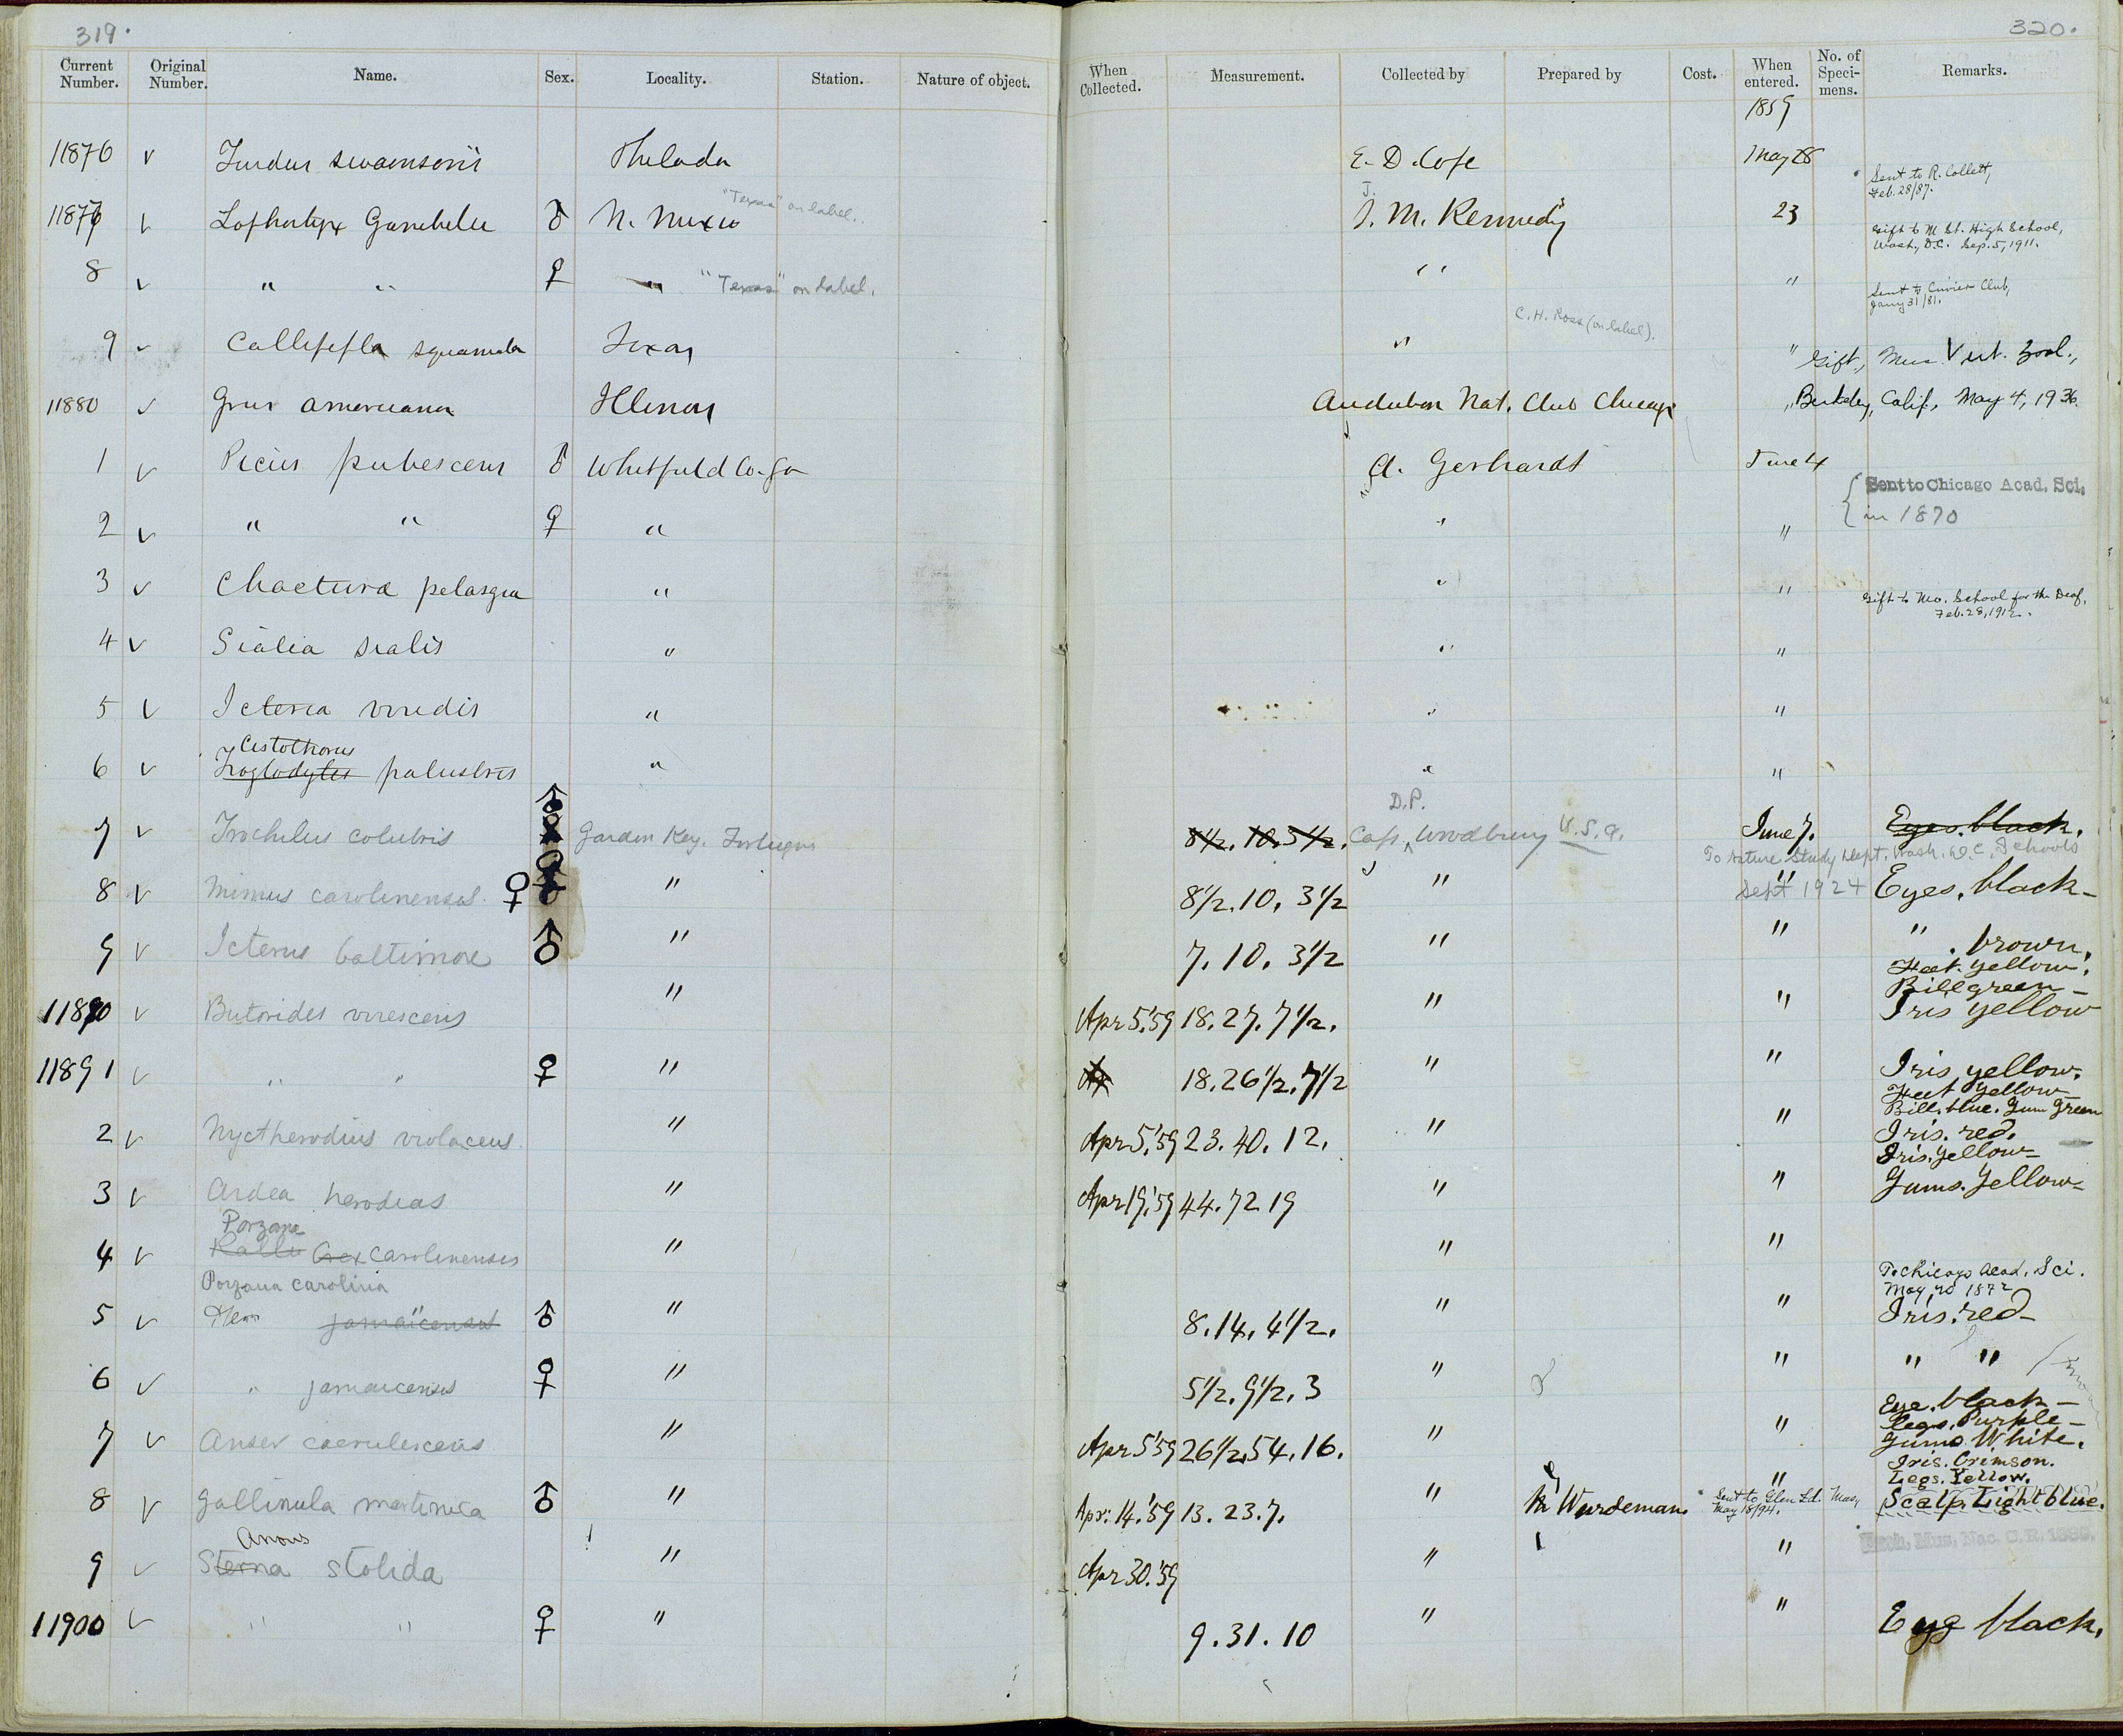 319.
Current Number. Original Number. Name. Sex. Locality. Station. Nature of object.
11876 v Turdus swainsonii Philada
"Texas" on label.
11877 v Lophortyx Gambelii ♂ N. Mexico
8 v " " ♀ " "Texas" on label.
9 v Callipepla squamata Texas
11880 v Grus americana Illinois
1 v Picus pubescens ♂ Whitfield Co. Ga
2 v " " ♀ "
3 v Chaetura pelasgia "
4 v Sialia sialis "
5 v Icteria viridis "
Cistothorus
6 v Troglodytes palustris "
♂
7 v Trochilus colubris Garden Key. Tortugas
8 v Mimus carolinensis. ♀ "
9 v Icterus baltimore ♂ "
11890 v Butorides virescens "
11891 v " " ♀ "
2 v Nyctherodius violaceus. "
3 v Ardea herodias "
Porzana
4 v Rallus Crex carolinensis "
Porzana carolina
5 v jamaicensis ♂ "
6 v " jamaicensis ♀ "
7 v Anser caerulescens "
8 v Gallinula martinica ♂ "
Anous
9 v Sterna stolida "
11900 v " " ♀ "
320.
When Collected. Measurement. Collected by Prepared by Cost. When entered. No. of Specimens. Remarks.
1859
E. D. Cope May 28
Sent to R. Collett,
Feb. 28/87.
J.
J. M. Kennedy 23
Gift to M St. High School,
Wash., D.C. Sep. 5, 1911.
" "
Sent to Cuvier Club,
Jany 31/81.
C. H. Ross (on label).
" " Gift, Mus. Vert. Zool.,
Audubon Nat. Club Chicago " Berkeley, Calif., May 4, 1936.
A. Gerhardt June 4
Sent to Chicago Acad. Sci.
in 1870
" "
" "
Gift to Mo. School for the Deaf,
Feb. 28, 1912.
" "
" "
" "
D.P.
8½. 10. 3½. Capt. Woodbury U.S.A. June 7. Eyes. black.
To Nature Study Dept. Wash. D.C. Schools
Sept 1924
8½. 10. 3½ " " Eyes. black-
7. 10. 3½ " " " . brown.
Feet. yellow.
Bill green-
Apr 5.'59 18. 27. 7½. " " Iris yellow
18. 26½. 7½ " " Iris yellow.
Feet yellow-
Bill. blue. Gum Green
Apr 5.'59 23. 40. 12. " " Iris. red.
Iris. yellow-
Apr 19.'59 44. 72 19 " " Gums. yellow-
" "
To Chicago Acad. Sci.
May 20 1872
8. 14. 4½. " " Iris. red-
5½. 9½. 3 " " " "
Eye. black-
Legs. Purple-
Apr 5.'59 26½. 54. 16. " " Gums. White.
Iris. Crimson.
Legs. Yellow.
Apr: 14.'59 13. 23. 7. " Wurdeman. " Scalp. Light blue.
Sent to Glen Ed. Mas,
May 18/94.
Apr 30.'59 " "
Exch. Mus. Nac. C. R.
9. 31. 10 " " Eye black.